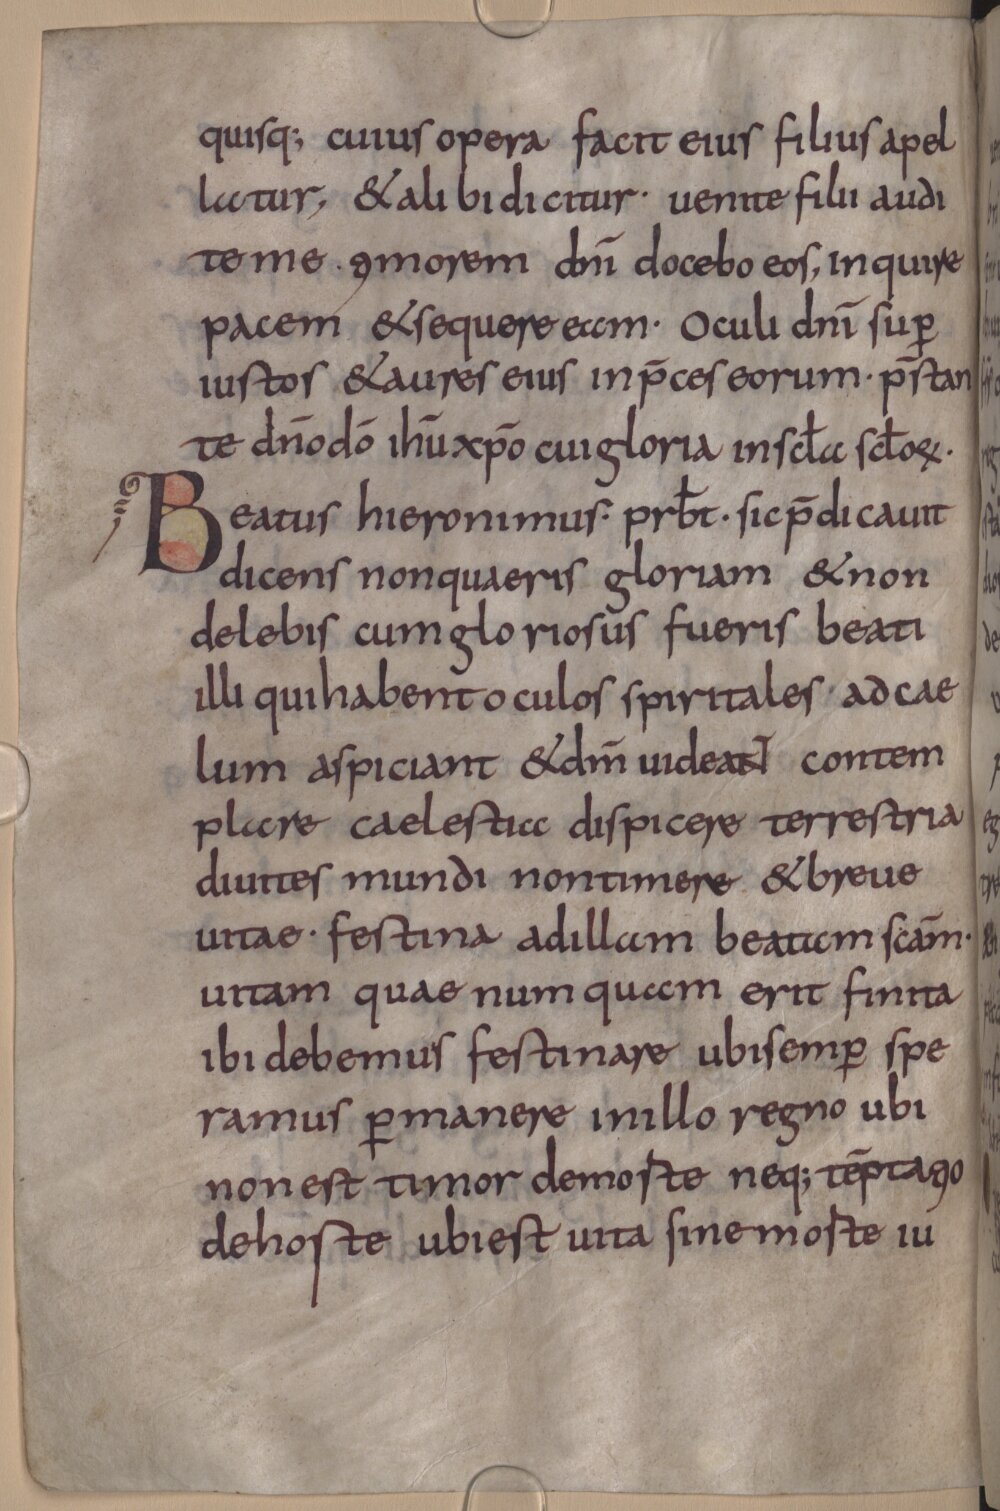 quisq; cuius opera facit eius filius apel
latur, & alibi dicitur· uenite filii audi
te me . ꝯmorem dn̄i docebo eos, inquire
pacem & sequere eam· Oculi dn̄i suꝑ
iustos & aures eius in p̄ces eorum· p̄stan
te dn̄o dō ihū xp̄o cui gloria in scła scłoꝝ·
Beatus hieronimus· prb̄t· sic p̄dicauit
dicens non quaeris gloriam & non
delebis cum gloriosus fueris beati
illi qui habent oculos spiritales· ad cae
lum aspiciant & dm̄ uideant contem
plare caelestia dispicere terrestria
diuites mundi non timere & breue
uitae· festina ad illam beatam scām·
uitam quae numquam erit finita
ibi debemus festinare ubi semꝑ spe
ramus ꝑmanere in illo regno ubi
non est timor de morte neq; tēptatio
de hoste ubi est uita sine morte iu